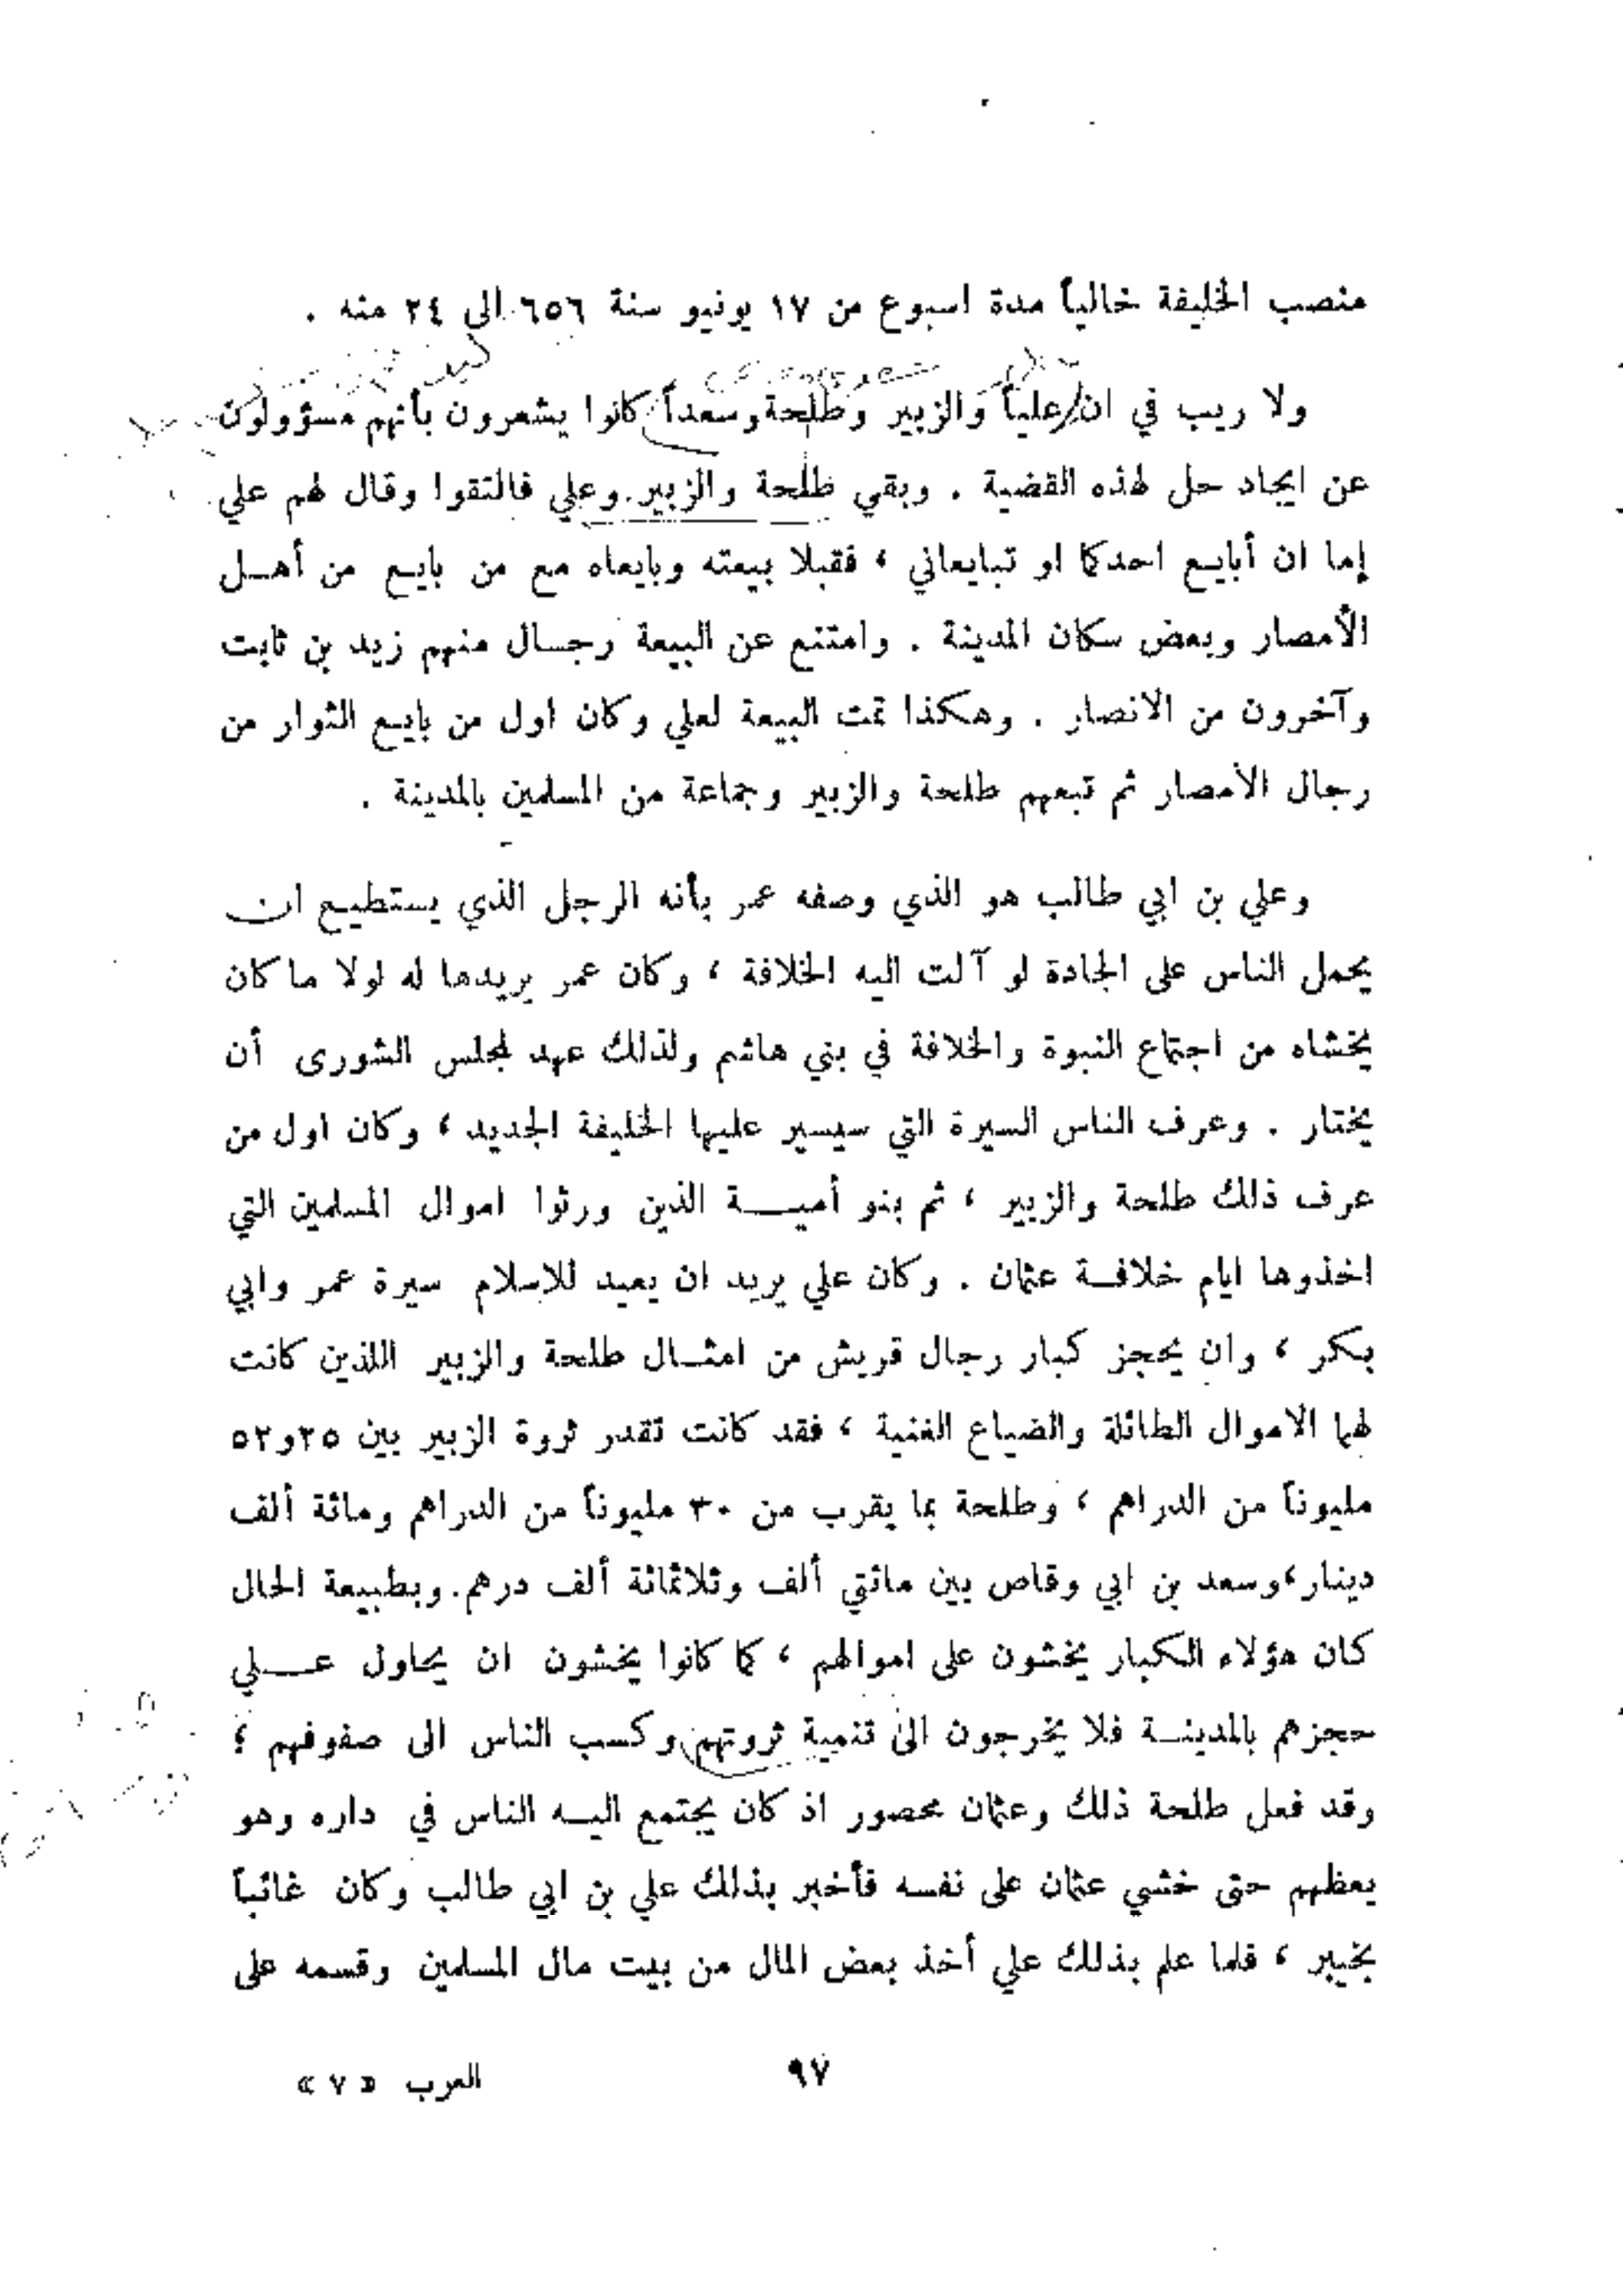 منصب الخليفة خالياً مدة اسبوع من ١٧ يونيو سنة ٦٥٦ الى ٢٤ منه .
ولا ريب في ان علياً والزبير وطلحة وسعداً كانوا يشعرون بأنهم مسؤولون
عن ايجاد حل لهذه القضية . وبقي طلحة والزبير وعلي فالتقوا وقال لهم علي
إما ان أبايع احدكما او تبايعاني ، فقبلا بيعته وبايعاه مع من بايع من أهل
الأمصار وبعض سكان المدينة . وامتنع عن البيعة رجال منهم زيد بن ثابت
وآخرون من الانصار . وهكذا تمت البيعة لعلي وكان اول من بايع الثوار من
رجال الأمصار ثم تبعهم طلحة والزبير وجماعة من المسلمين بالمدينة .
وعلي بن ابي طالب هو الذي وصفه عمر بأنه الرجل الذي يستطيع ان
يحمل الناس على الجادة لو آلت اليه الخلافة ، وكان عمر يريدها له لولا ما كان
يخشاه من اجتماع النبوة والخلافة في بني هاشم ولذلك عهد لمجلس الشورى أن
يختار . وعرف الناس السيرة التي سيسير عليها الخليفة الجديد ، وكان اول من
عرف ذلك طلحة والزبير ، ثم بنو أمية الذين ورثوا اموال المسلمين التي
اخذوها ايام خلافة عثمان . وكان علي يريد ان يعيد للإسلام سيرة عمر وابي
بكر ، وان يحجز كبار رجال قريش من امثال طلحة والزبير اللذين كانت
لهما الاموال الطائلة والضياع الغنية ، فقد كانت تقدر ثروة الزبير بين ٣٥و٥٢
مليوناً من الدراهم ، وطلحة بما يقرب من ٣٠ مليوناً من الدراهم ومائة ألف
دينار،وسعد بن ابي وقاص بين مائتي ألف وثلاثمائة ألف درهم. وبطبيعة الحال
كان هؤلاء الكبار يخشون على اموالهم ، كما كانوا يخشون ان يحاول علي
حجزهم بالمدينة فلا يخرجون الى تنمية ثروتهم وكسب الناس الى صفوفهم ؛
وقد فعل طلحة ذلك وعثمان محصور اذ كان يجتمع اليه الناس في داره وهو
يعظهم حتى خشي عثمان على نفسه فأخبر بذلك علي بن ابي طالب وكان غائباً
بخيبر ، فلما علم بذلك علي أخذ بعض المال من بيت مال المسلمين وقسمه على
٩٧
العرب « ٧ »